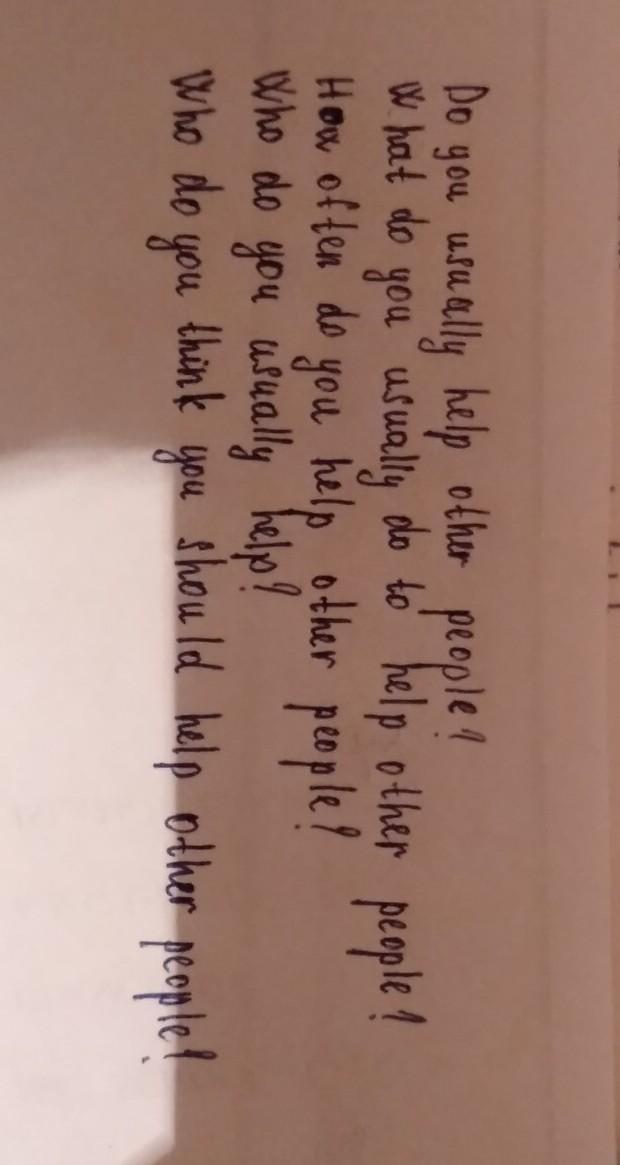 Do you usually help other people?
What do you usually do to help other people?
How often do you help other people?
Who do you usually help?
Who do you think you should help other people?